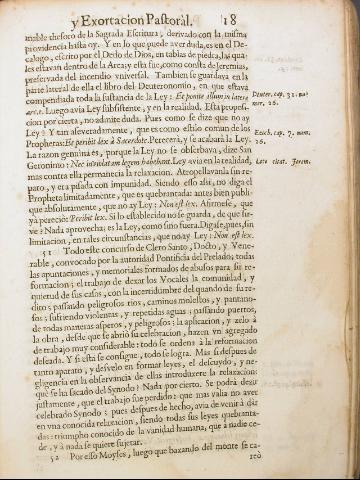 y Exortacion Pastoràl. 18
mable thesoro de la Sagrada Escritura, derivado con la misma
providencia hasta oy. Y en lo que puede aver duda, es en el De-
calogo, escrito por el Dedo de Dios, en tablas de piedra, las qua-
les estavan dentro de la Arca; y esta fue, como consta de Jeremias,
preservada del incendio vniversal. Tambien se guardava en la
parte lateral de ella el libro del Deuteronomio, en que estavà
compendiada toda la sustancia de la Ley: Et ponite illum in latere
arcæ. Luego avia Ley subsistente, y en la realidad. Esta proposi-
cion por cierta, no admite duda. Pues como se dize que no ay
Ley? Y tan aseveradamente, que es como estilo comun de los
Prophetas: Et peribit lex à Sacerdote. Perecerà, y se acabarà la Ley.
La razon genuina es, porque la Ley no se observava, dize San
Geronimo: Nec inviolatam legem habebunt. Ley avia en la realidad,
mas contra ella permanecia la relaxacion. Atropellavanla sin re-
paro, y era pisada con impunidad. Siendo esso assi, no diga el
Propheta limitadamente, que es quebrantada: antes bien publi-
que absolutamente, que no ay Ley: Non est lex. Afirmese, que
ya pereciò: Peribit lex. Si lo establecido no se guarda, de que sir-
ve? Nada aprovecha; es la Ley, como sino fuera. Digase, pues, sin
limitacion, en tales circunstancias, que no ay Ley: Non est lex.
51 Todo este concurso de Clero Santo, Docto, y Vene-
rable, convocado por la autoridad Pontificia del Prelado; todas
las apuntaciones, y memoriales formados de abusos para su re-
formacion; el trabajo de dexar los Vocales la comunidad, y
quietud de sus casas, con la incertidumbre del quando de su re-
dito; passando peligrosos rios, caminos molestos, y pantano-
sos; sufriendo violentas, y repetidas aguas; passando puertos,
de todas maneras asperos, y peligrosos: la aplicacion, y zelo à
la obra, desde que se abriò su celebracion, hazen vn agregado
de trabajo muy considerable: todo se ordena à la reformacion
deseada. Y si esta se consigue, todo se logra. Mas si despues de
tanto aparato, y desvelo en formar leyes, el descuydo, y ne-
gligencia en la observancia de ellas introduxere la relaxacion:
que se ha sacado del Synodo? Nada por cierto. Se podrà dezir
justamente, que el trabajo fue perdido: que mas valia no aver
celebrado Synodo: pues despues de hecho, avia de venir à dàr
en vna conocida relaxacion, siendo todas sus leyes quebranta-
das: triumpho conocido de la vanidad humana, que à nadie ce-
de, y à nada se quiere sujetar.
52 Por esso Moyses, luego que baxando del monte se ca-
reò
Deuter. cap. 31. nu-
mer. 26.
Ezech. cap. 7. num.
26.
Loco citat. Jerem.